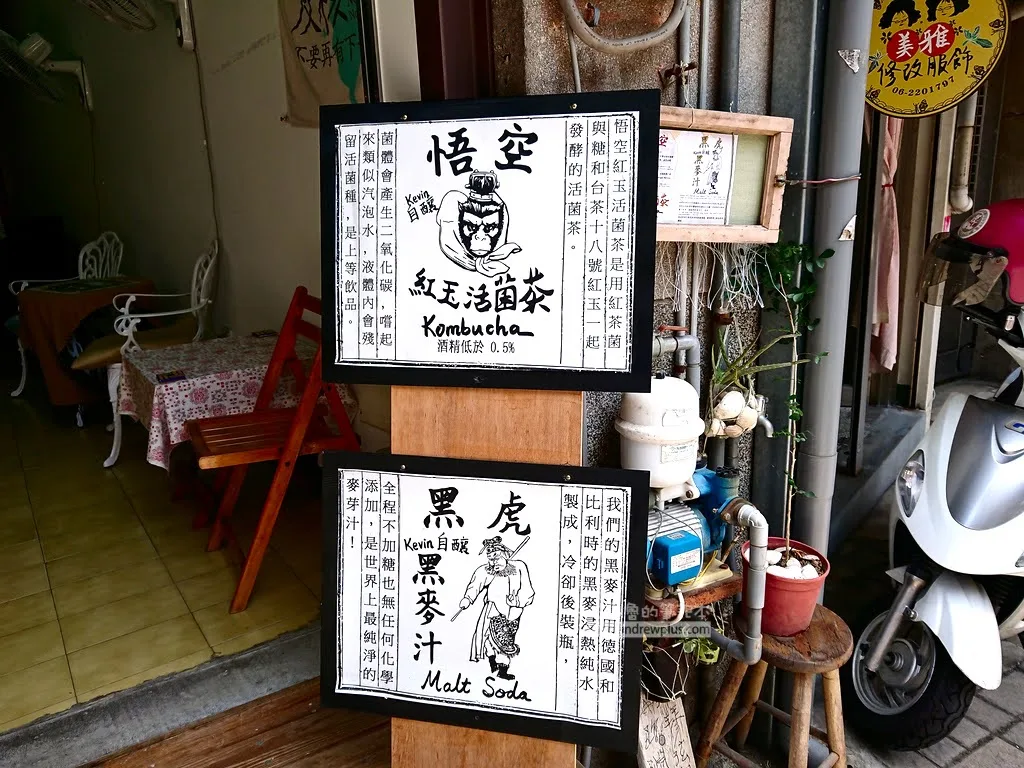 悟空
Kevin
自釀
紅玉活菌茶
Kombucha
酒精低於 0.5%
悟空紅玉活菌茶是用紅茶菌
與糖和台茶十八號紅玉一起
發酵的活菌茶。
菌體會產生二氧化碳,嚐起
來類似汽泡水,液體內會殘
留活菌種,是上等飲品。
黑虎
Kevin 自釀
黑麥汁
Malt Soda
我們的黑麥汁用德國和
比利時的黑麥浸熱純水
製成,冷卻後裝瓶,
全程不加糖也無任何化學
添加,是世界上最純淨的
麥芽汁!
不要再有下
美雅
修改服飾
06-2201797
黑虎
黑麥汁
Malt
andrewplus.com